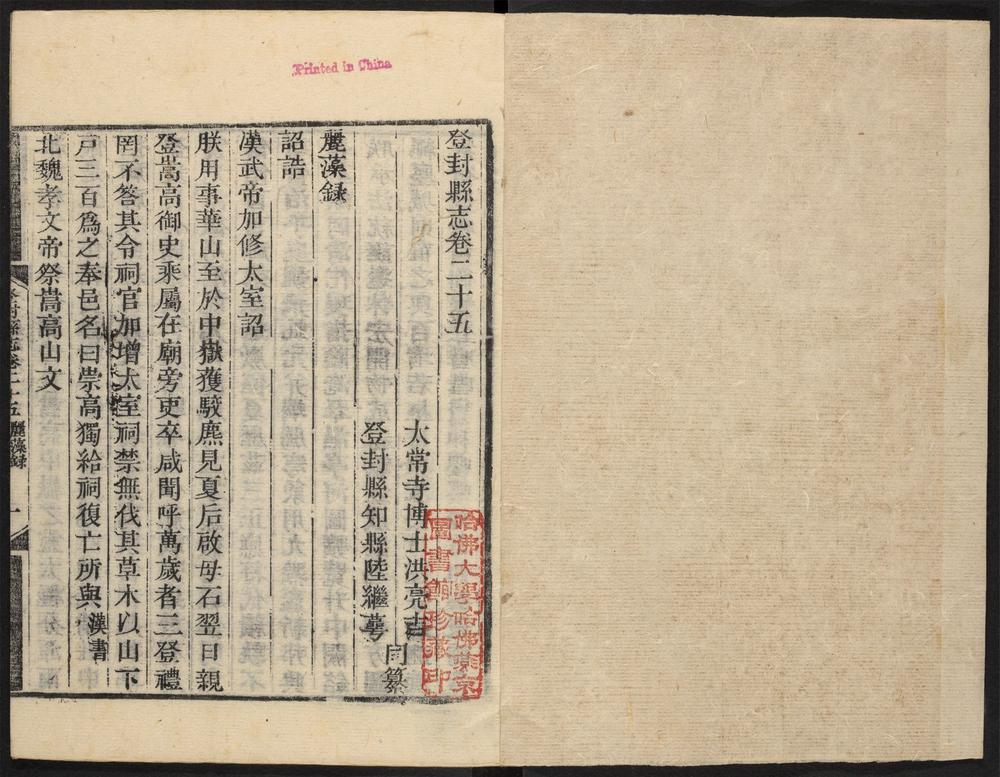 Printed in China
登封縣志卷二十五
太常寺博士洪亮吉
登封縣知縣陸繼萼
同纂
麗藻録
詔誥
漢武帝加修太室詔
朕用事華山至於中嶽獲駮麃見夏后啟母石翌日親
登嵩高御史乘屬在廟旁吏卒咸聞呼萬歲者三登禮
罔不答其令祠官加增太室祠禁無伐其草木以山下
戸三百爲之奉邑名曰崇高獨給祠復亡所與漢書
北魏孝文帝祭嵩高山文
登封縣志卷二十五 麗藻録 一
哈佛大學哈佛燕京
圖書館珍藏印